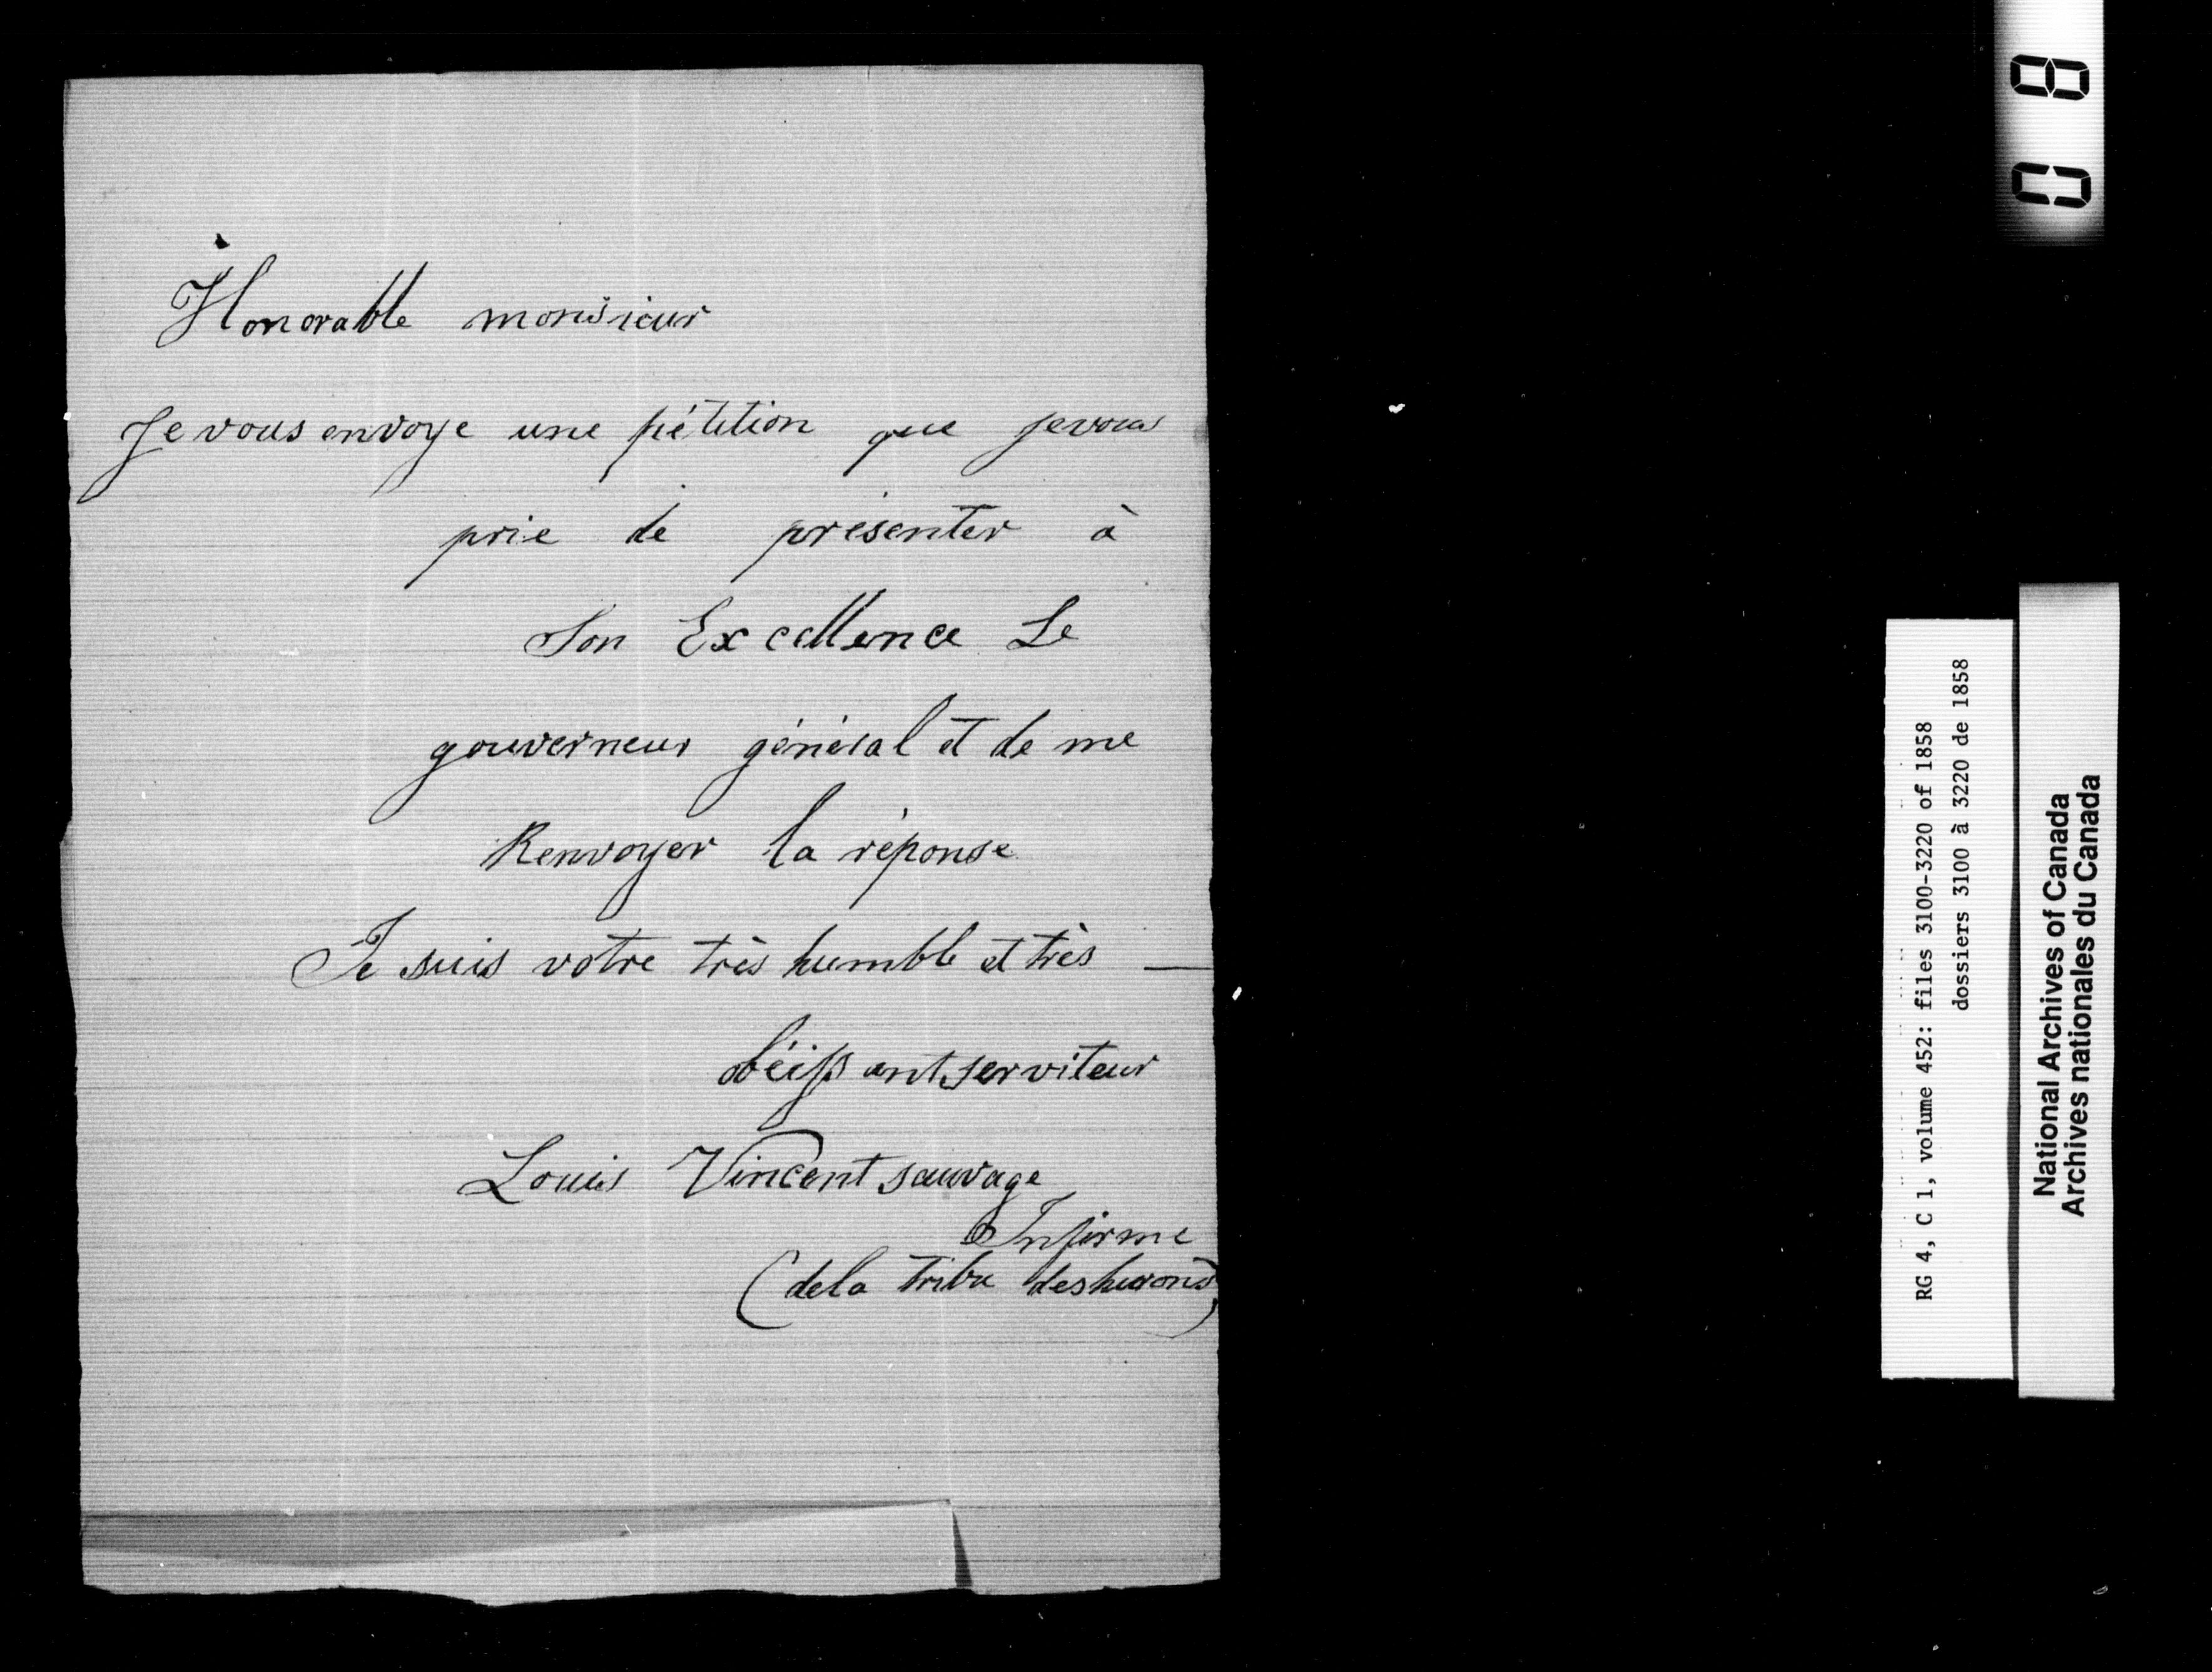 Honorable monsieur
Je vous envoye une pétition que je vous
prie de présenter à
Son Excellence Le
gouverneur général et de me
Renvoyer la réponse
Je suis votre très humble et très —
obéissant serviteur
Louis Vincent sauvage
Infirme
(de la tribu des hurons)
08
RG 4, C 1, volume 452: files 3100-3220 of 1858
dossiers 3100 à 3220 de 1858
National Archives of Canada
Archives nationales du Canada